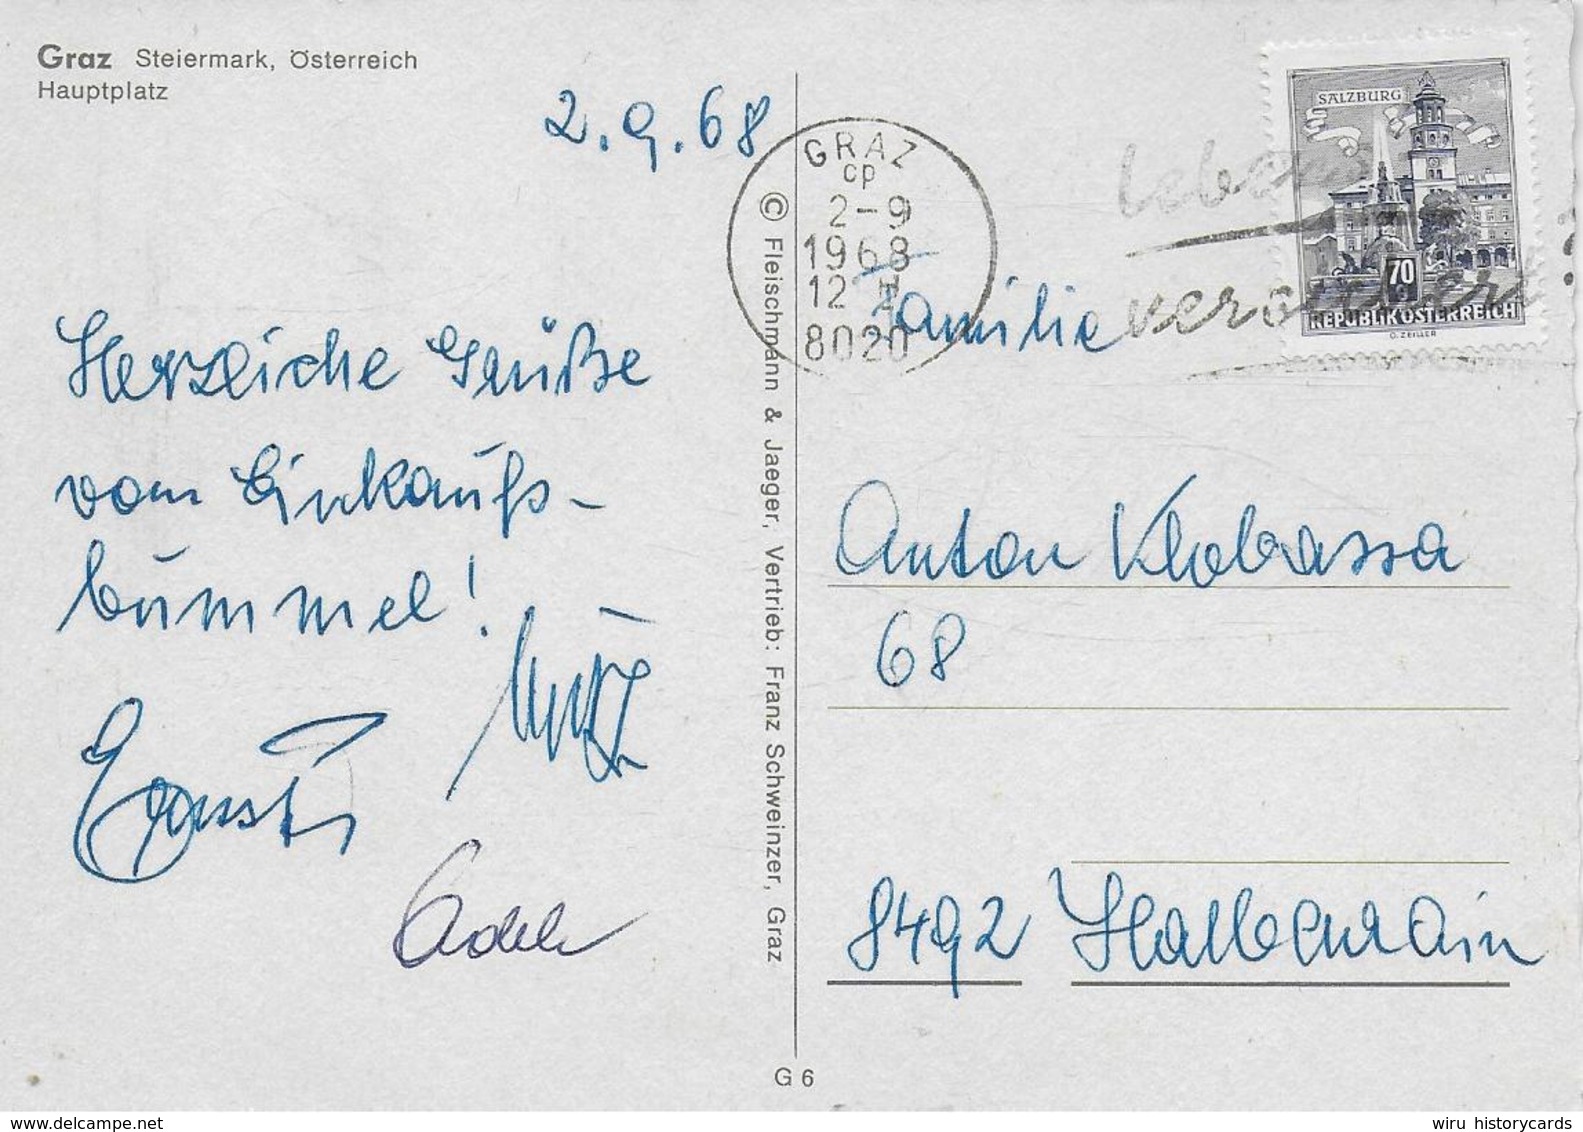 Graz Steiermark, Österreich
Hauptplatz
2.9.68
Herzliche Grüße
vom Einkaufs-
bummel!
Adele
© Fleischmann & Jaeger, Vertrieb: Franz Schweinzer, Graz
G 6
GRAZ
cp
2-9
1968
12
8020
SALZBURG
70
REPUBLIK ÖSTERREICH
O. ZEILLER
Familie
Anton Klobassa
68
8492 Halbenrain
wiru historycards